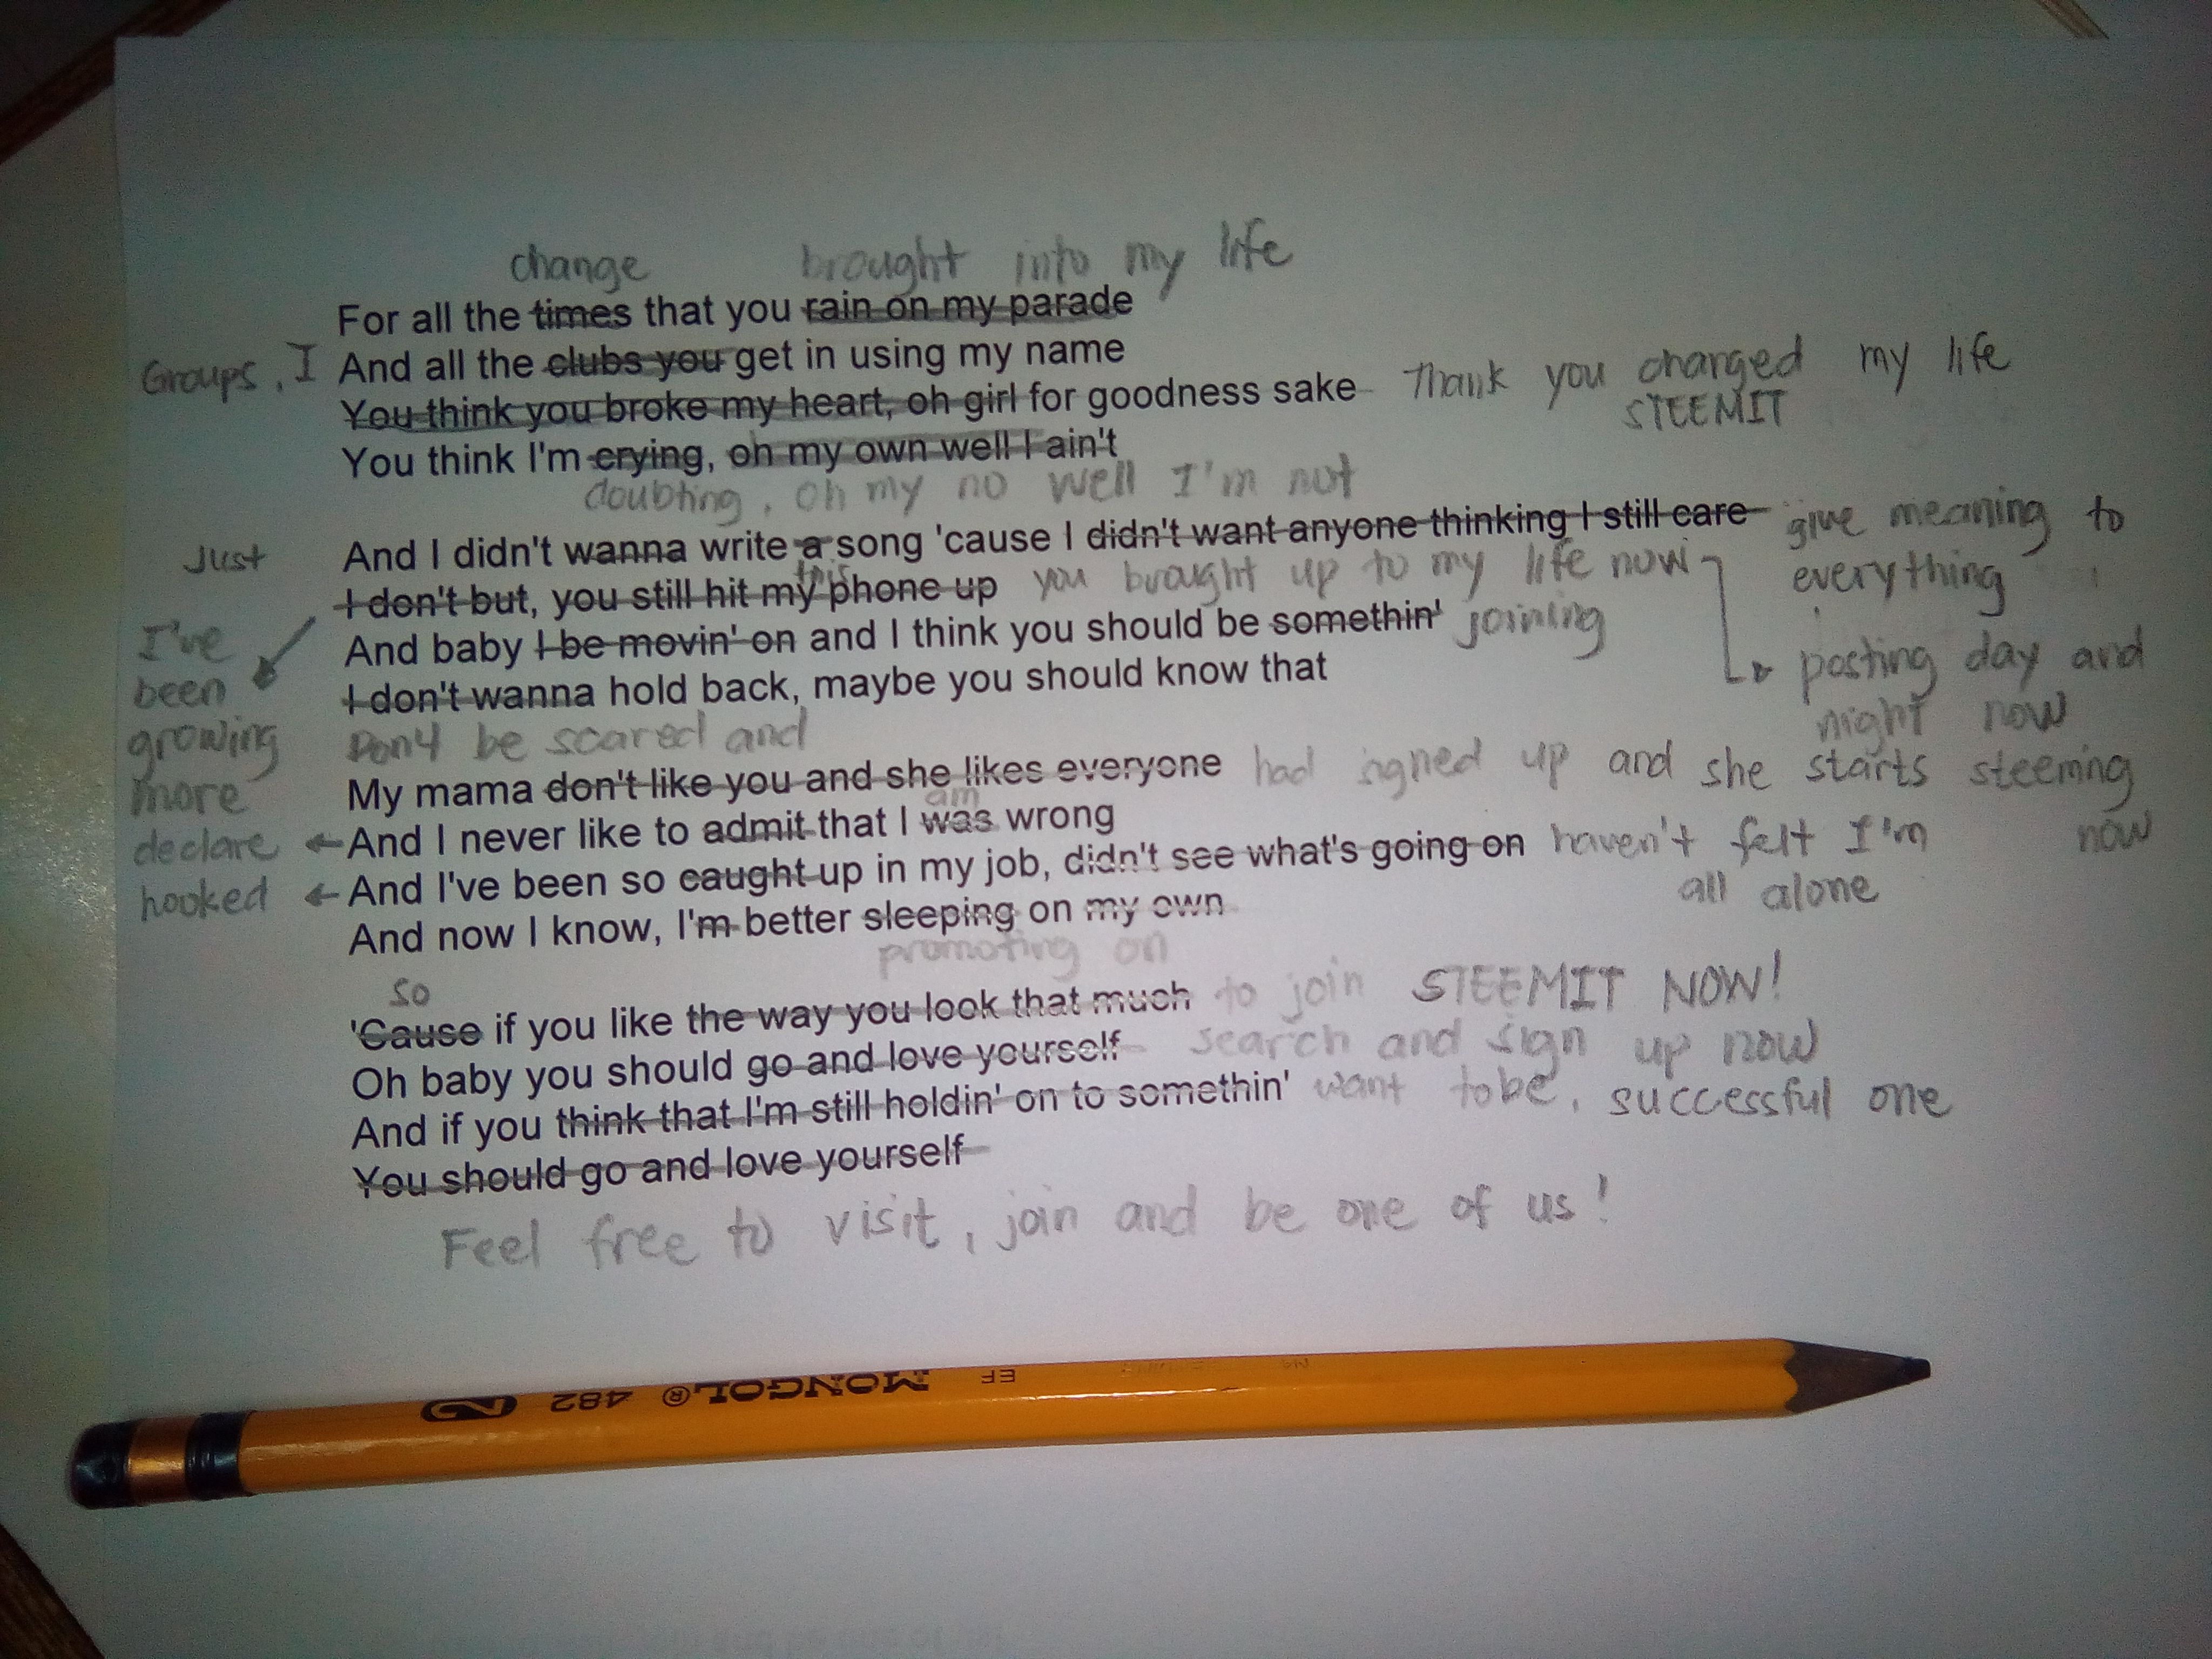 change brought into my life
For all the times that you rain on my parade
Groups, I And all the clubs you get in using my name
You think you broke my heart, oh girl for goodness sake Thank you changed my life
STEEMIT
You think I'm crying, oh my own well I ain't
doubting, oh my no well I'm not
Just And I didn't wanna write a song 'cause I didn't want anyone thinking I still care give meaning to
everything
this
I don't but, you still hit my phone up you brought up to my life now
I've
been
growing
more
And baby I be movin' on and I think you should be somethin' joining
posting day and
night now
I don't wanna hold back, maybe you should know that
Don't be scared and
My mama don't like you and she likes everyone had signed up and she starts steeming
now
am
declare And I never like to admit that I was wrong
hooked And I've been so caught up in my job, didn't see what's going on haven't felt I'm
all alone
And now I know, I'm better sleeping on my own
promoting on
so
'Cause if you like the way you look that much to join STEEMIT NOW!
Oh baby you should go and love yourself search and sign up now
And if you think that I'm still holdin' on to somethin' want to be, successful one
You should go and love yourself
Feel free to visit, join and be one of us!
MONGOL® 482 2
EF